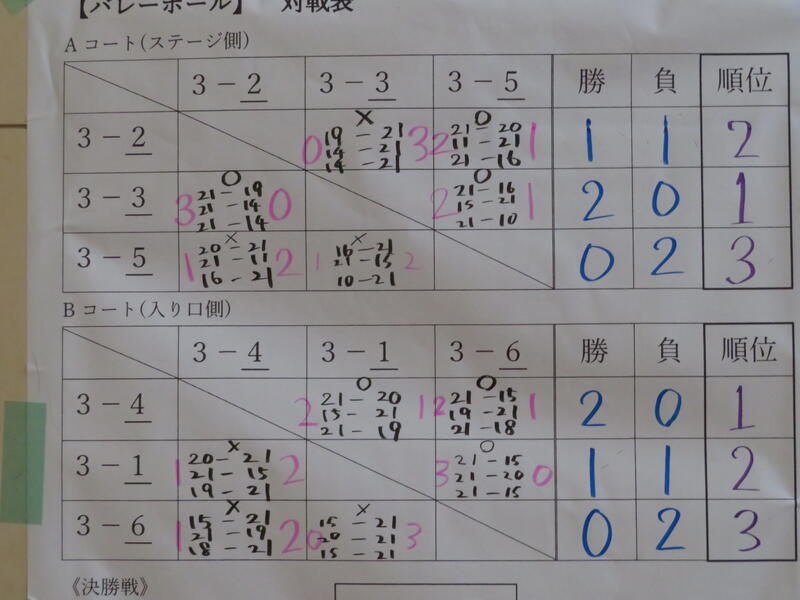 【バレーボール】 対戦表
Aコート(ステージ側)
3-2 3-3 3-5 勝 負 順位
3-2 × ○ 1 1 2
0 19-21 3 2 21-20 1
14-21 11-21
14-21 21-16
3-3 ○ ○ 2 0 1
3 21-19 0 2 21-16 1
21-14 15-21
21-14 21-10
3-5 × × 0 2 3
1 20-21 2 1 16-21 2
21-11 21-15
16-21 10-21
Bコート(入り口側)
3-4 3-1 3-6 勝 負 順位
3-4 ○ ○ 2 0 1
2 21-20 1 2 21-15 1
15-21 19-21
21-19 21-18
3-1 × ○ 1 1 2
1 20-21 2 3 21-15 0
21-15 21-20
19-21 21-15
3-6 × × 0 2 3
1 15-21 2 0 15-21 3
21-19 20-21
18-21 15-21
《決勝戦》